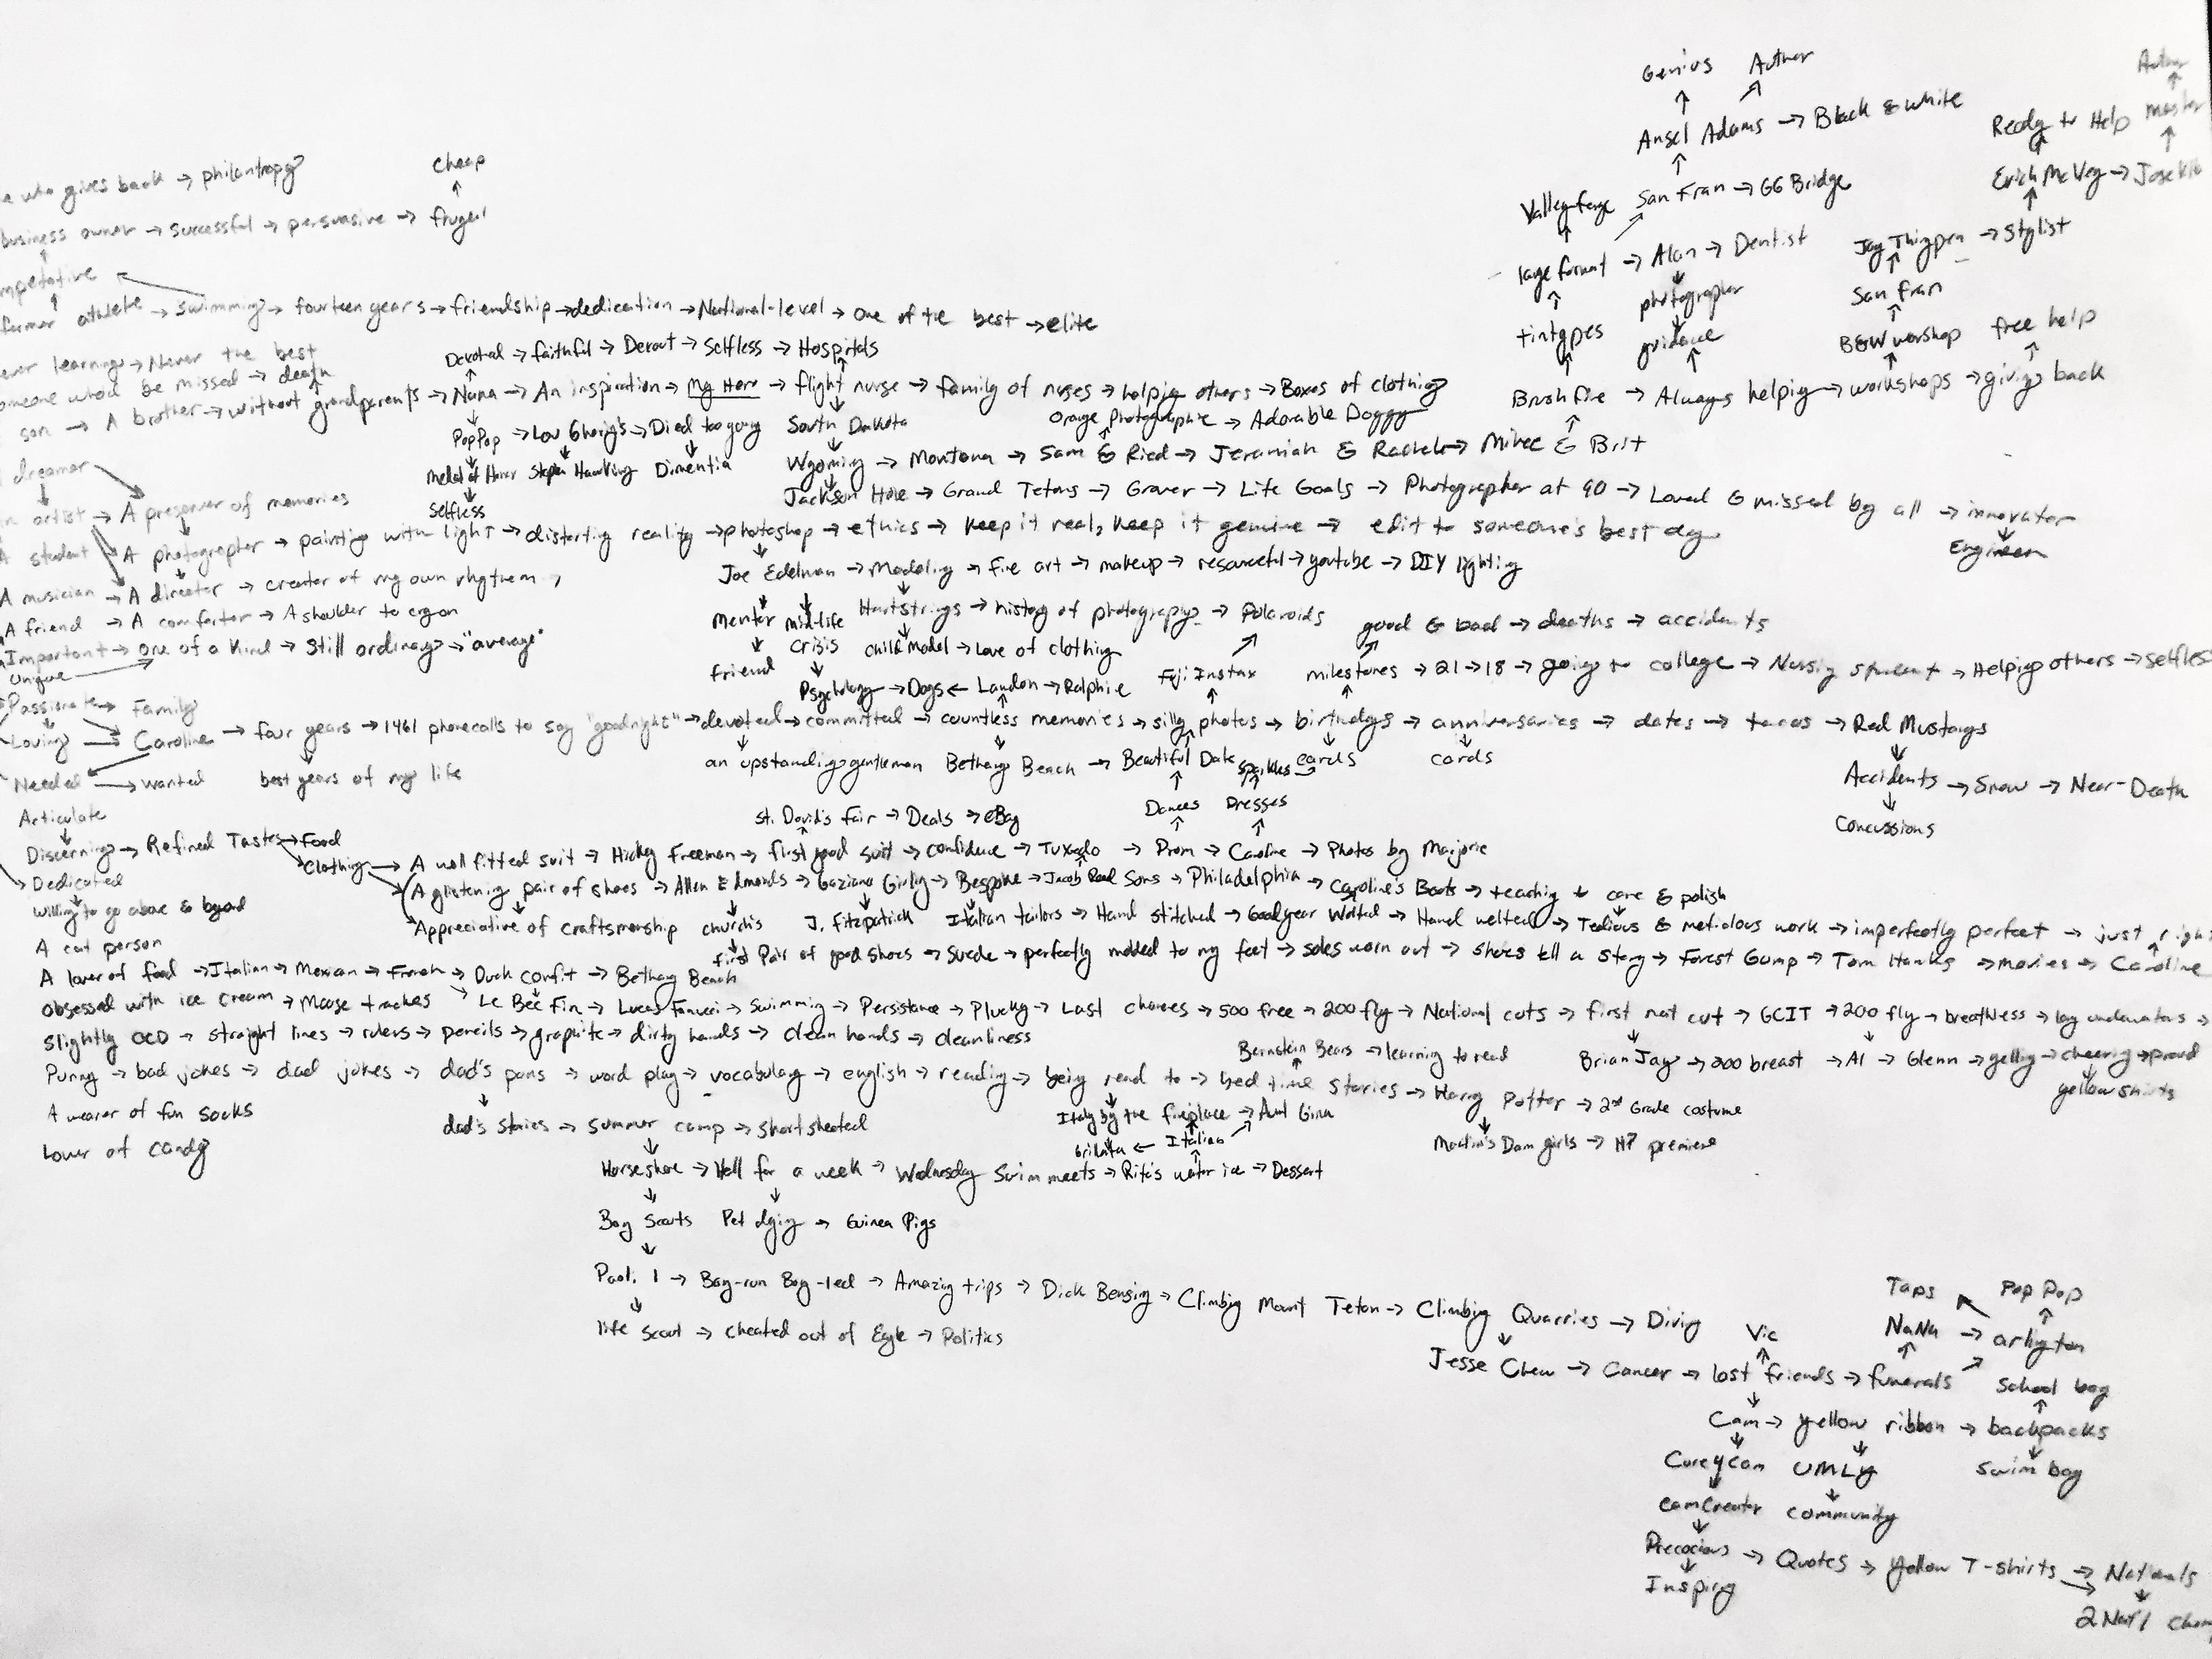 Genius Author
Ansel Adams → Black & white
Ready to Help Master
cheap
who gives back → philantropy
Valley forge San Fran → GG Bridge
Erich McVey →
business owner → successful → persuasive → frugal
large format → Alan → Dentist Jay Thigpen → Stylist
photographer San Fran
former athlete → swimming → fourteen years → friendship → dedication → National-level → One of the best → elite
tintypes guidance B&W worshop free help
learning → Never the best
Devoted → faithful → Devout → Selfless → Hospitals
someone who'd be missed → death
son → A brother → without grandparents → Nana → An inspiration → My Hero → flight nurse → family of nurses → helpig others → Boxes of clothing
Brushfire → Always helpig → workshops → giving back
PopPop → Lou Gherig's → Died too young South Dakota Orange Photographie → Adorable Doggy
Medal of Honor Stephen Hawking Dimentia Wyoming → Montana → Sam & Ried → Jeramiah & Rachel → Mihec & Brit
dreamer
Selfless Jackson Hole → Grand Tetons → Grover → Life Goals → Photographer at 90 → Loved & missed by all → innovator
artist → A preserver of memories
Engineer
A student A photographer → painting with light → distorting reality → photoshop → ethics → keep it real, keep it genuine → edit to someone's best day
Joe Edelman → Modeling → fine art → makeup → resourceful → youtube → DIY lighting
A musician → A director → creator of my own rhythem
A friend → A comforter → A shoulder to cry on
mentor mid-life crisis Hartstrings → history of photography → Polaroids good & bad → deaths → accidents
Important → one of a kind → Still ordinary → "average"
friend child model → Love of clothing
Unique
Psychology → Dogs ← Landon → Ralphie Fuji Instax milestones → 21 → 18 → going to college → Nursing student → Helping others → selfless
Passionate → Family
Loving → Caroline → four years → 1461 phonecalls to say "goodnight" → devoted → committed → countless memories → silly photos → birthdays → anniversaries → dates → tacos → Red Mustangs
an upstanding gentleman Bethany Beach → Beautiful Date Sparkles → cards cards
Needed → wanted best years of my life
Accidents → Snow → Near-Death
Dances Dresses
Articulate
St. David's fair → Deals → eBay
Concussions
Discerning → Refined Tastes → Food
Clothing → A well fitted suit → Hickey Freeman → first good suit → confidence → Tuxedo → Prom → Caroline → Photos by Marjorie
Dedicated
A glistening pair of shoes → Allen Edmonds → Gaziano Girling → Bespoke → Jacob Reed Sons → Philadelphia → Caroline's Boots → teaching to care & polish
willing to go above & beyond
Appreciative of craftsmanship church's J. Fitzpatrick Italian tailors → Hand stitched → Goodyear Welted → Hand welted → Tedious & meticulous work → imperfectly perfect → just right
A cat person
first Pair of good shoes → Suede → perfectly molded to my feet → soles worn out → shoes tell a story → Forest Gump → Tom Hanks → movies → Caroline
A lover of food → Italian → Mexican → French → Duck confit → Bethany Beach
obsessed with ice cream → Moose traches Le Bec Fin → Swimming → Persistance → Plucky → Last chances → 500 free → 200 fly → National cuts → first nat cut → GCIT → 200 fly → breathless →
Slightly OCD → straight lines → rulers → pencils → graphite → dirty hands → clean hands → cleanliness
Bernstein Bears → learning to read Brian Jay → 200 breast → Al → Glenn → yelling → cheering → proud
Punny → bad jokes → dad jokes → dad's puns → word play → vocabulay → english → reading → being read to → bed time stories → Harry Potter → 2nd Grade costume
yellow shirts
A wearer of fun socks
dad's stories → summer camp → short sheeted Italy by the fireplace → Aunt Gina
← Italian Martin's Dam girls → HP premiere
Lover of candy
Horseshoe → Hell for a week → Wednesday Swim meets → Rita's water ice → Dessert
Boy Scouts Pet dying → Guinea Pigs
Paoli 1 → Boy-run Boy-led → Amazing trips → Dick Bensing → Climbing Mount Teton → Climbing Quarries → Diving
Taps Pop Pop
life scout → cheated out of Eagle → Politics
Vic NaNa → arlington
Jesse Chew → Cancer → lost friends → funerals
School bag
Cam → yellow ribbon → backpacks
Cure4Cam UMLY swim bag
CamCreator community
Precocious → Quotes → yellow T-shirts → Nationals
Inspiring
2 Nat'l